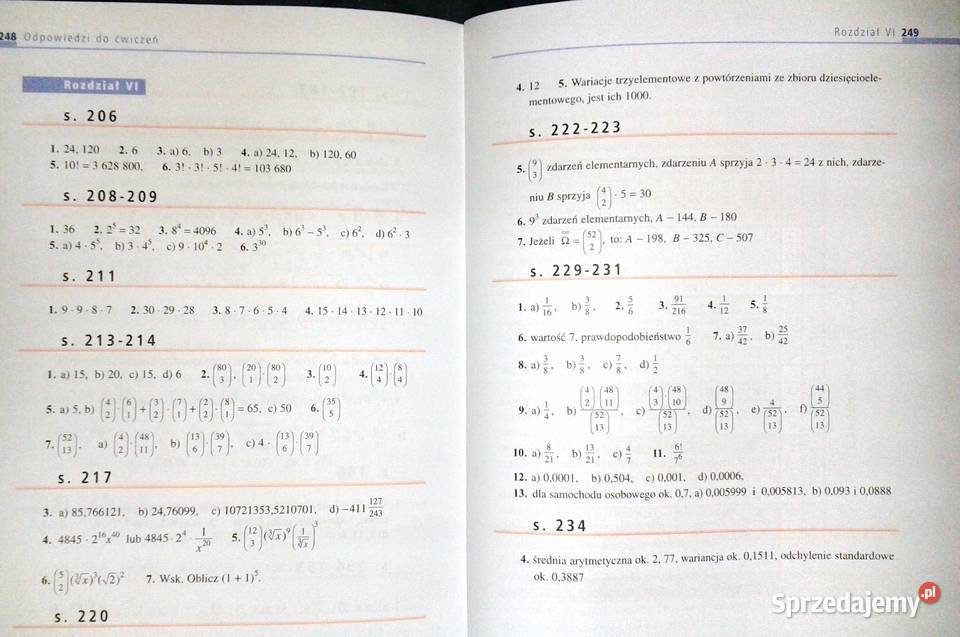 248 Odpowiedzi do ćwiczeń
Rozdział VI
s. 206
1. 24, 120 2. 6 3. a) 6, b) 3 4. a) 24, 12, b) 120, 60
5. 10! = 3 628 800, 6. 3! · 3! · 5! · 4! = 103 680
s. 208-209
1. 36 2. 2⁵ = 32 3. 8⁴ = 4096 4. a) 5³, b) 6³ – 5³, c) 6², d) 6² · 3
5. a) 4 · 5⁵, b) 3 · 4⁵, c) 9 · 10⁴ · 2 6. 3³⁰
s. 211
1. 9 · 9 · 8 · 7 2. 30 · 29 · 28 3. 8 · 7 · 6 · 5 · 4 4. 15 · 14 · 13 · 12 · 11 · 10
s. 213-214
1. a) 15, b) 20, c) 15, d) 6 2. (80 3), (20 1) · (80 2) 3. (10 2) 4. (12 4) · (8 4)
5. a) 5, b) (4 2) · (6 1) + (3 2) · (7 1) + (2 2) · (8 1) = 65, c) 50 6. (35 5)
7. (52 13), a) (4 2) · (48 11), b) (13 6) · (39 7), c) 4 · (13 6) · (39 7)
s. 217
3. a) 85,766121, b) 24,76099, c) 10721353,5210701, d) –411 127/243
4. 4845 · 2¹⁶x⁴⁰ lub 4845 · 2⁴ · 1/x²⁰ 5. (12 3)(∛x)⁹(1/∛x)³
6. (5 2)(∛x)³(√2)² 7. Wsk. Oblicz (1 + 1)⁵.
s. 220
Rozdział VI 249
4. 12 5. Wariacje trzyelementowe z powtórzeniami ze zbioru dziesięcioele-
mentowego, jest ich 1000.
s. 222-223
5. (9 3) zdarzeń elementarnych, zdarzeniu A sprzyja 2 · 3 · 4 = 24 z nich, zdarze-
niu B sprzyja (4 2) · 5 = 30
6. 9³ zdarzeń elementarnych, A – 144, B – 180
7. Jeżeli Ω̿ = (52 2), to: A – 198, B – 325, C – 507
s. 229-231
1. a) 1/16, b) 3/8, 2. 5/6 3. 91/216 4. 1/12 5. 1/8
6. wartość 7, prawdopodobieństwo 1/6 7. a) 37/42, b) 25/42
8. a) 3/8, b) 3/8, c) 7/8, d) 1/2
9. a) 1/4, b) (4 2) · (48 11)/(52 13), c) (4 3) · (48 10)/(52 13), d) (48 9)/(52 13), e) 4/(52 13), f) (44 5)/(52 13)
10. a) 8/21, b) 13/21, c) 4/7 11. 6!/7⁶
12. a) 0,0001, b) 0,504, c) 0,001, d) 0,0006,
13. dla samochodu osobowego ok. 0,7, a) 0,005999 i 0,005813, b) 0,093 i 0,0888
s. 234
4. średnia arytmetyczna ok. 2, 77, wariancja ok. 0,1511, odchylenie standardowe
ok. 0,3887
Sprzedajemy.pl